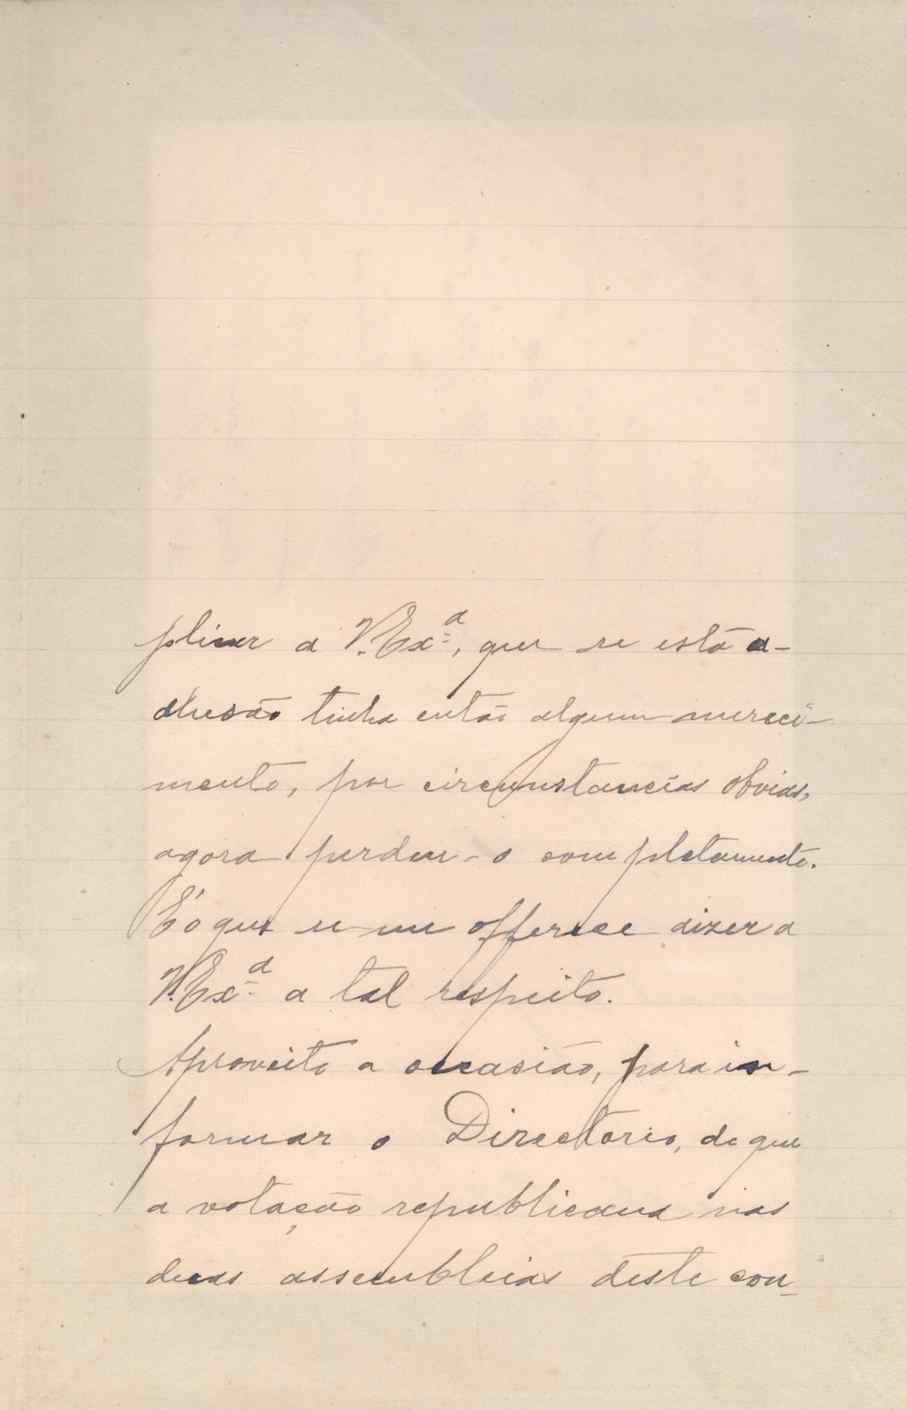 plicar a V. Exª, que se esta a-
dhesão tinha então algum mereci-
mento, por circunstancias obvias,
agora perdeu-o completamente.
É o que se me offerece dizer a
V. Exª a tal respeito.
Aproveito a occasião, para in-
formar o Directorio, de que
a votação republicana nas
duas assembleias deste con-